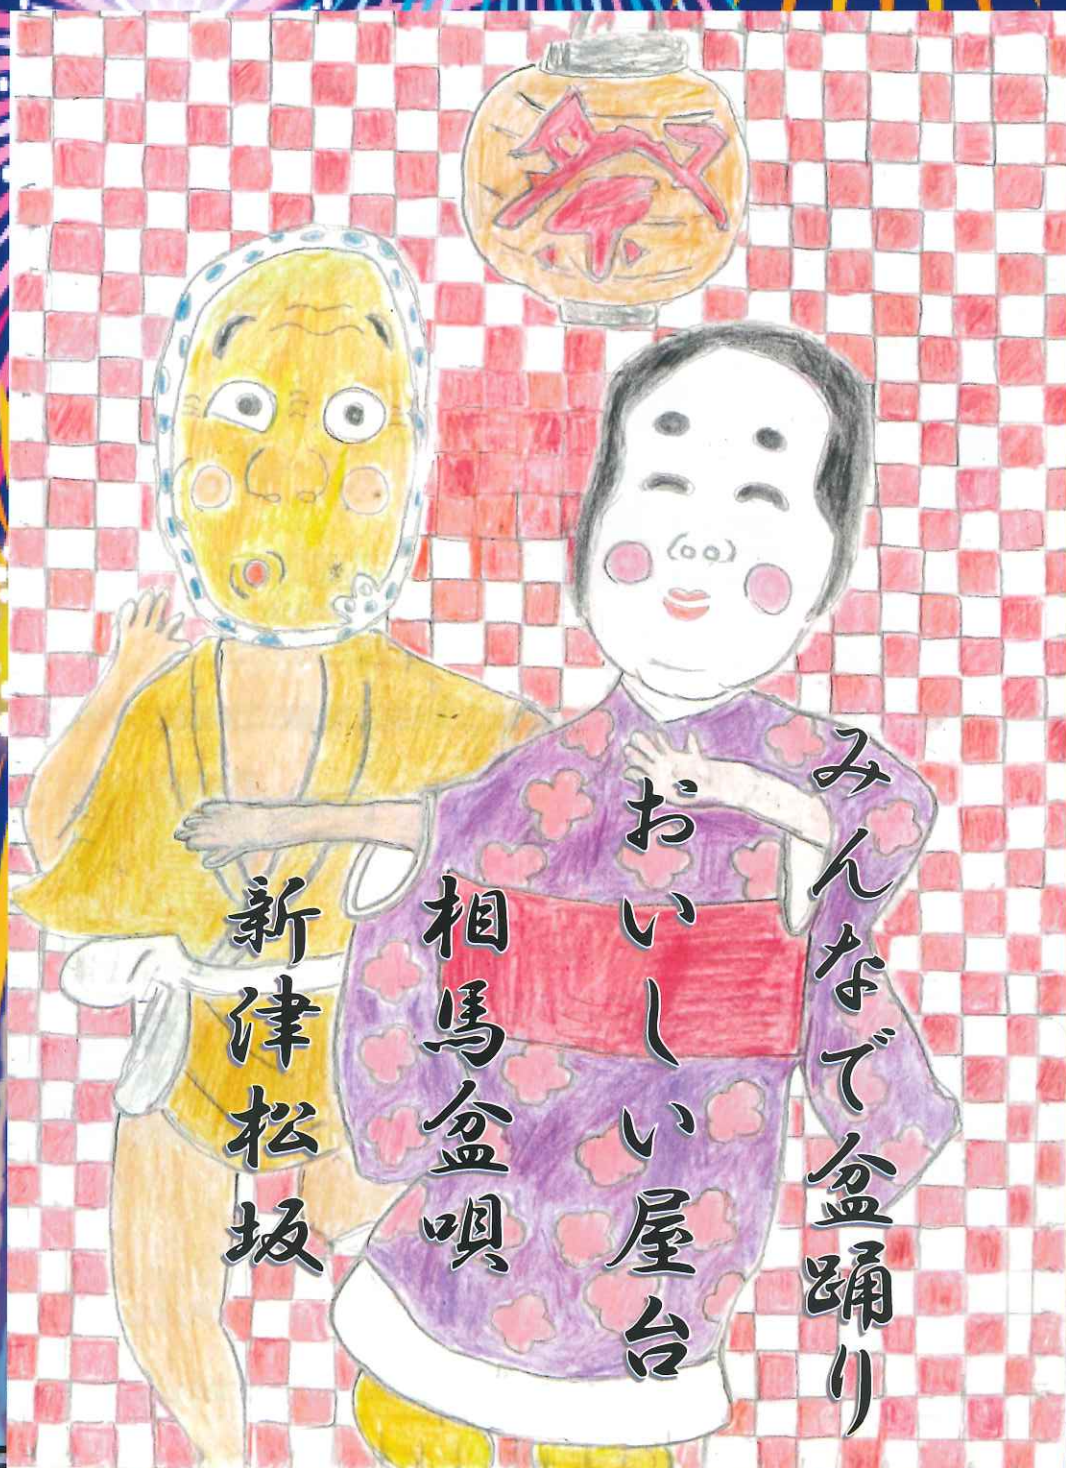 祭
みんなで盆踊り
おいしい屋台
相馬盆唄
新津松坂